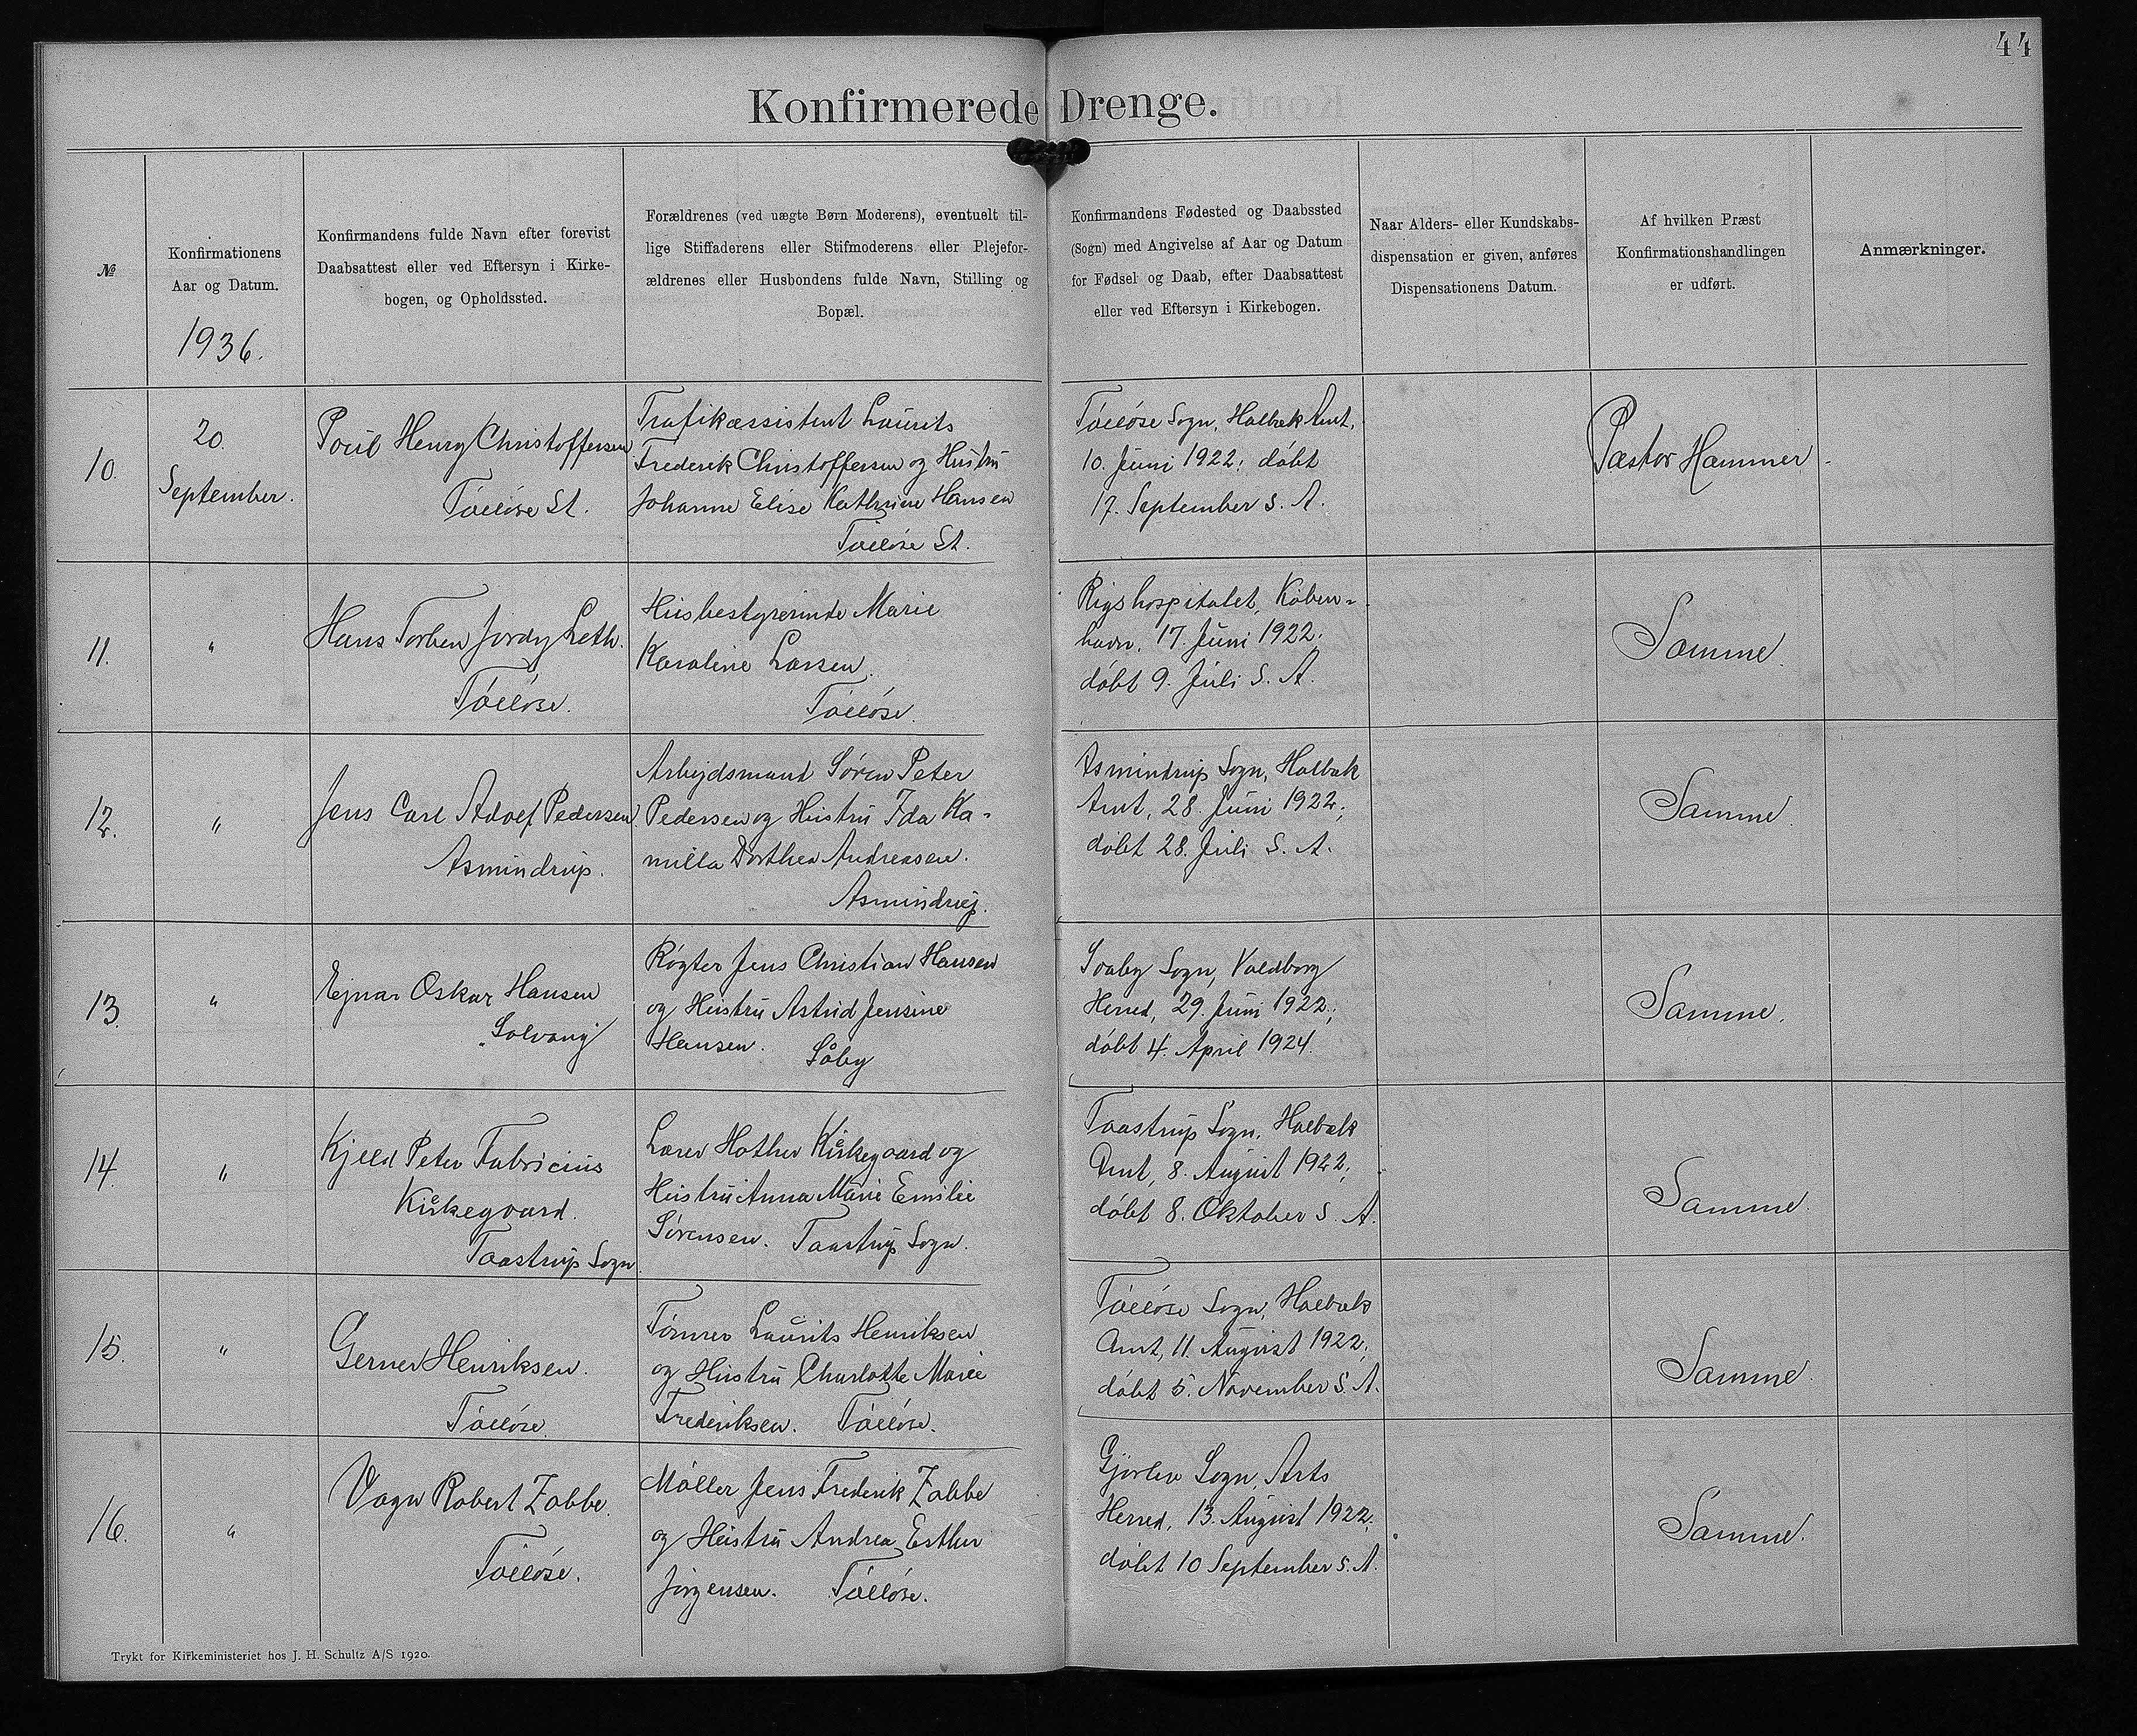 44
Konfirmerede Drenge.
№
Konfirmationens
Aar og Datum.
1936.
Konfirmandens fulde Navn efter forevist
Daabsattest eller ved Eftersyn i Kirke-
bogen, og Opholdssted.
Forældrenes (ved uægte Børn Moderens), eventuelt til-
lige Stiffaderens eller Stifmoderens eller Plejefor-
ældrenes eller Husbondens fulde Navn, Stilling og
Bopæl.
Konfirmandens Fødested og Daabssted
(Sogn) med Angivelse af Aar og Datum
for Fødsel og Daab, efter Daabsattest
eller ved Eftersyn i Kirkebogen.
Naar Alders- eller Kundskabs-
dispensation er given, anføres
Dispensationens Datum.
Af hvilken Præst
Konfirmationshandlingen
er udført.
Anmærkninger.
10.
20.
September.
Poul Henry Christoffersen
Tølløse St.
Trafikassistent Laurits
Frederik Christoffersen og Hustru
Johanne Elise Kathrine Hansen
Tølløse St.
Tølløse Sogn, Holbæk Amt,
10. Juni 1922; døbt
17. September s. A.
Pastor Hammer.
11.
"
Hans Torben Jordy Leth.
Tølløse.
Husbestyrerinde Marie
Karoline Larsen.
Tølløse.
Rigshospitalet, Køben-
havn, 17. Juni 1922;
døbt 9. Juli s. A.
Samme.
12.
"
Jens Carl Adolf Pedersen.
Asmindrup.
Arbejdsmand Søren Peter
Pedersen og Hustru Ida Ka-
milla Dorthea Andreasen.
Asmindrup.
Asmindrup Sogn, Holbæk
Amt, 28. Juni 1922;
døbt 28. Juli s. A.
Samme.
13.
"
Ejnar Oskar Hansen
Solvang
Røgter Jens Christian Hansen
og Hustru Astrid Jensine
Hansen. Såby
Soaby Sogn, Voldborg
Herred, 29. Juni 1922;
døbt 4. April 1924.
Samme.
14.
"
Kjeld Peter Fabricius
Kirkegaard.
Taastrup Sogn.
Lærer Hother Kirkegaard og
Hustru Anna Marie Emilie
Sørensen. Taastrup Sogn.
Taastrup Sogn, Holbæk
Amt, 8. August 1922;
døbt 8. Oktober s. A.
Samme.
15.
"
Gerner Henriksen.
Tølløse.
Tømrer Laurits Henriksen
og Hustru Charlotte Marie
Frederiksen. Tølløse.
Tølløse Sogn, Holbæk
Amt, 11. August 1922;
døbt 5. November s. A.
Samme.
16.
"
Vagn Robert Zabbe.
Tølløse.
Møller Jens Frederik Zabbe
og Hustru Andrea Esther
Jørgensen. Tølløse.
Gjørlev Sogn, Arts
Herred, 13. August 1922;
døbt 10 September s. A.
Samme.
Trykt for Kirkeministeriet hos J. H. Schultz A/S 1920.